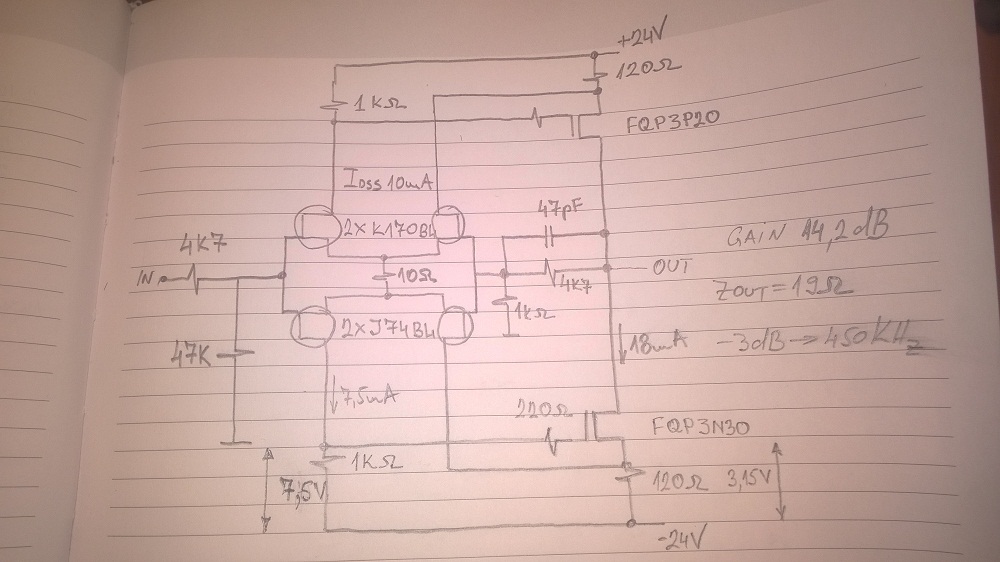 +24V
120Ω
1KΩ
FQP3P20
IDSS 10mA
47pF
2xK170BL
4K7
GAIN 14,2dB
IN
10Ω
OUT
4K7
ZOUT=19Ω
1KΩ
2xJ74BL
47K
18mA
-3dB→450KHz
7,5mA
220Ω
FQP3N30
1KΩ
7,5V
120Ω
3,15V
-24V